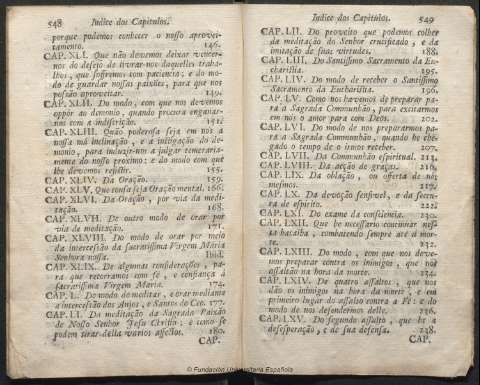 548 Indice dos Capitulos.
porque podemos conhecer o nosso aprovei-
tamento. 146.
CAP. XLI. Que não devemos deixar vencer-
nos do desejo de livrar-nos daquelles traba-
lhos, que soffremos com paciencia; e do mo-
do de guardar nossas paixões, para que nos
possão aproveitar. 149.
CAP. XLII. Do modo, com que nos devemos
oppôr ao demonio, quando procura enganar-
nos com a indiscrição. 151.
CAP. XLIII. Quão poderosa seja em nós a
nossa má inclinação, e a instigação do de-
monio, para induzir-nos a julgar temeraria-
mente do nosso proximo: e do modo com que
lhe devemos resistir. 155.
CAP. XLIV. Da Oração. 159.
CAP. XLV. Que cousa seja Oração mental. 166.
CAP. XLVI. Da Oração, por via da medi-
tação. 168.
CAP. XLVII. De outro modo de orar por
via de meditação. 171.
CAP. XLVIII. Do modo de orar por meio
da intercessão da sacratissima Virgem Maria
Senhora nossa. Ibid.
CAP. XLIX. De algumas considerações, pa-
ra que recorramos com fé, e confiança á
sacratissima Virgem Maria. 174.
CAP. L. Do modo de meditar, e orar mediante
a intercessão dos Anjos, e Santos do Ceo. 177.
CAP. LI. Da meditação da Sagrada Paixão
de Nosso Senhor Jesu Christo; e como se
podem tirar della varios affectos. 180.
CAP.
Indice dos Capitulos. 549
CAP. LII. Do proveito que podemos colher
da meditação do Senhor crucificado, e da
imitação de suas virtudes. 188.
CAP. LIII. Do Santissimo Sacramento da Eu-
charistia. 195.
CAP. LIV. Do modo de receber o Santissimo
Sacramento da Eucharistia. 196.
CAP. LV. Como nos havemos de preparar pa-
ra a Sagrada Communhão, para excitarmos
em nós o amor para com Deos. 202.
CAP. LVI. Do modo de nos prepararmos pa-
ra a Sagrada Communhão, quando he che-
gado o tempo de a irmos receber. 207.
CAP. LVII. Da Communhão espiritual. 213.
CAP. LVIII. Da acção de graças. 216.
CAP. LIX. Da oblação, ou offerta de nós
mesmos. 217.
CAP. LX. Da devoção sensivel, e da secca-
ra de espirito. 222.
CAP. LXI. Do exame da consciencia. 230.
CAP. LXII. Que he necessario continuar nesta
batalha, combatendo sempre até á mor-
te. 232.
CAP. LXIII. Do modo, com que nos deve-
mos preparar contra os inimigos, que nos
assaltão na hora da morte. 234.
CAP. LXIV. De quatro assaltos, que nos
dão os inimigos na hora da morte, e em
primeiro lugar do assalto contra a Fé: e do
modo de nos defendermos delle. 236.
CAP. LXV. Do segundo assalto, que he a
desesperação, e de sua defensa. 238.
CAP.
© Fundación Universitaria Española